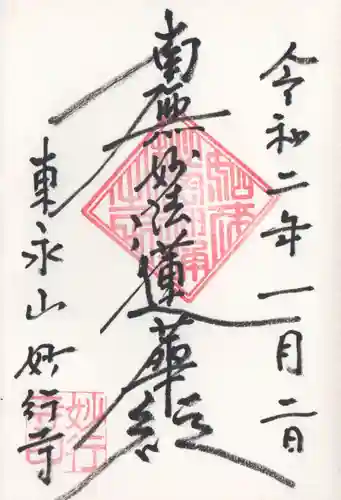 令和二年一月二日
南無妙法蓮華経
東永山妙行寺
妙行
寺印